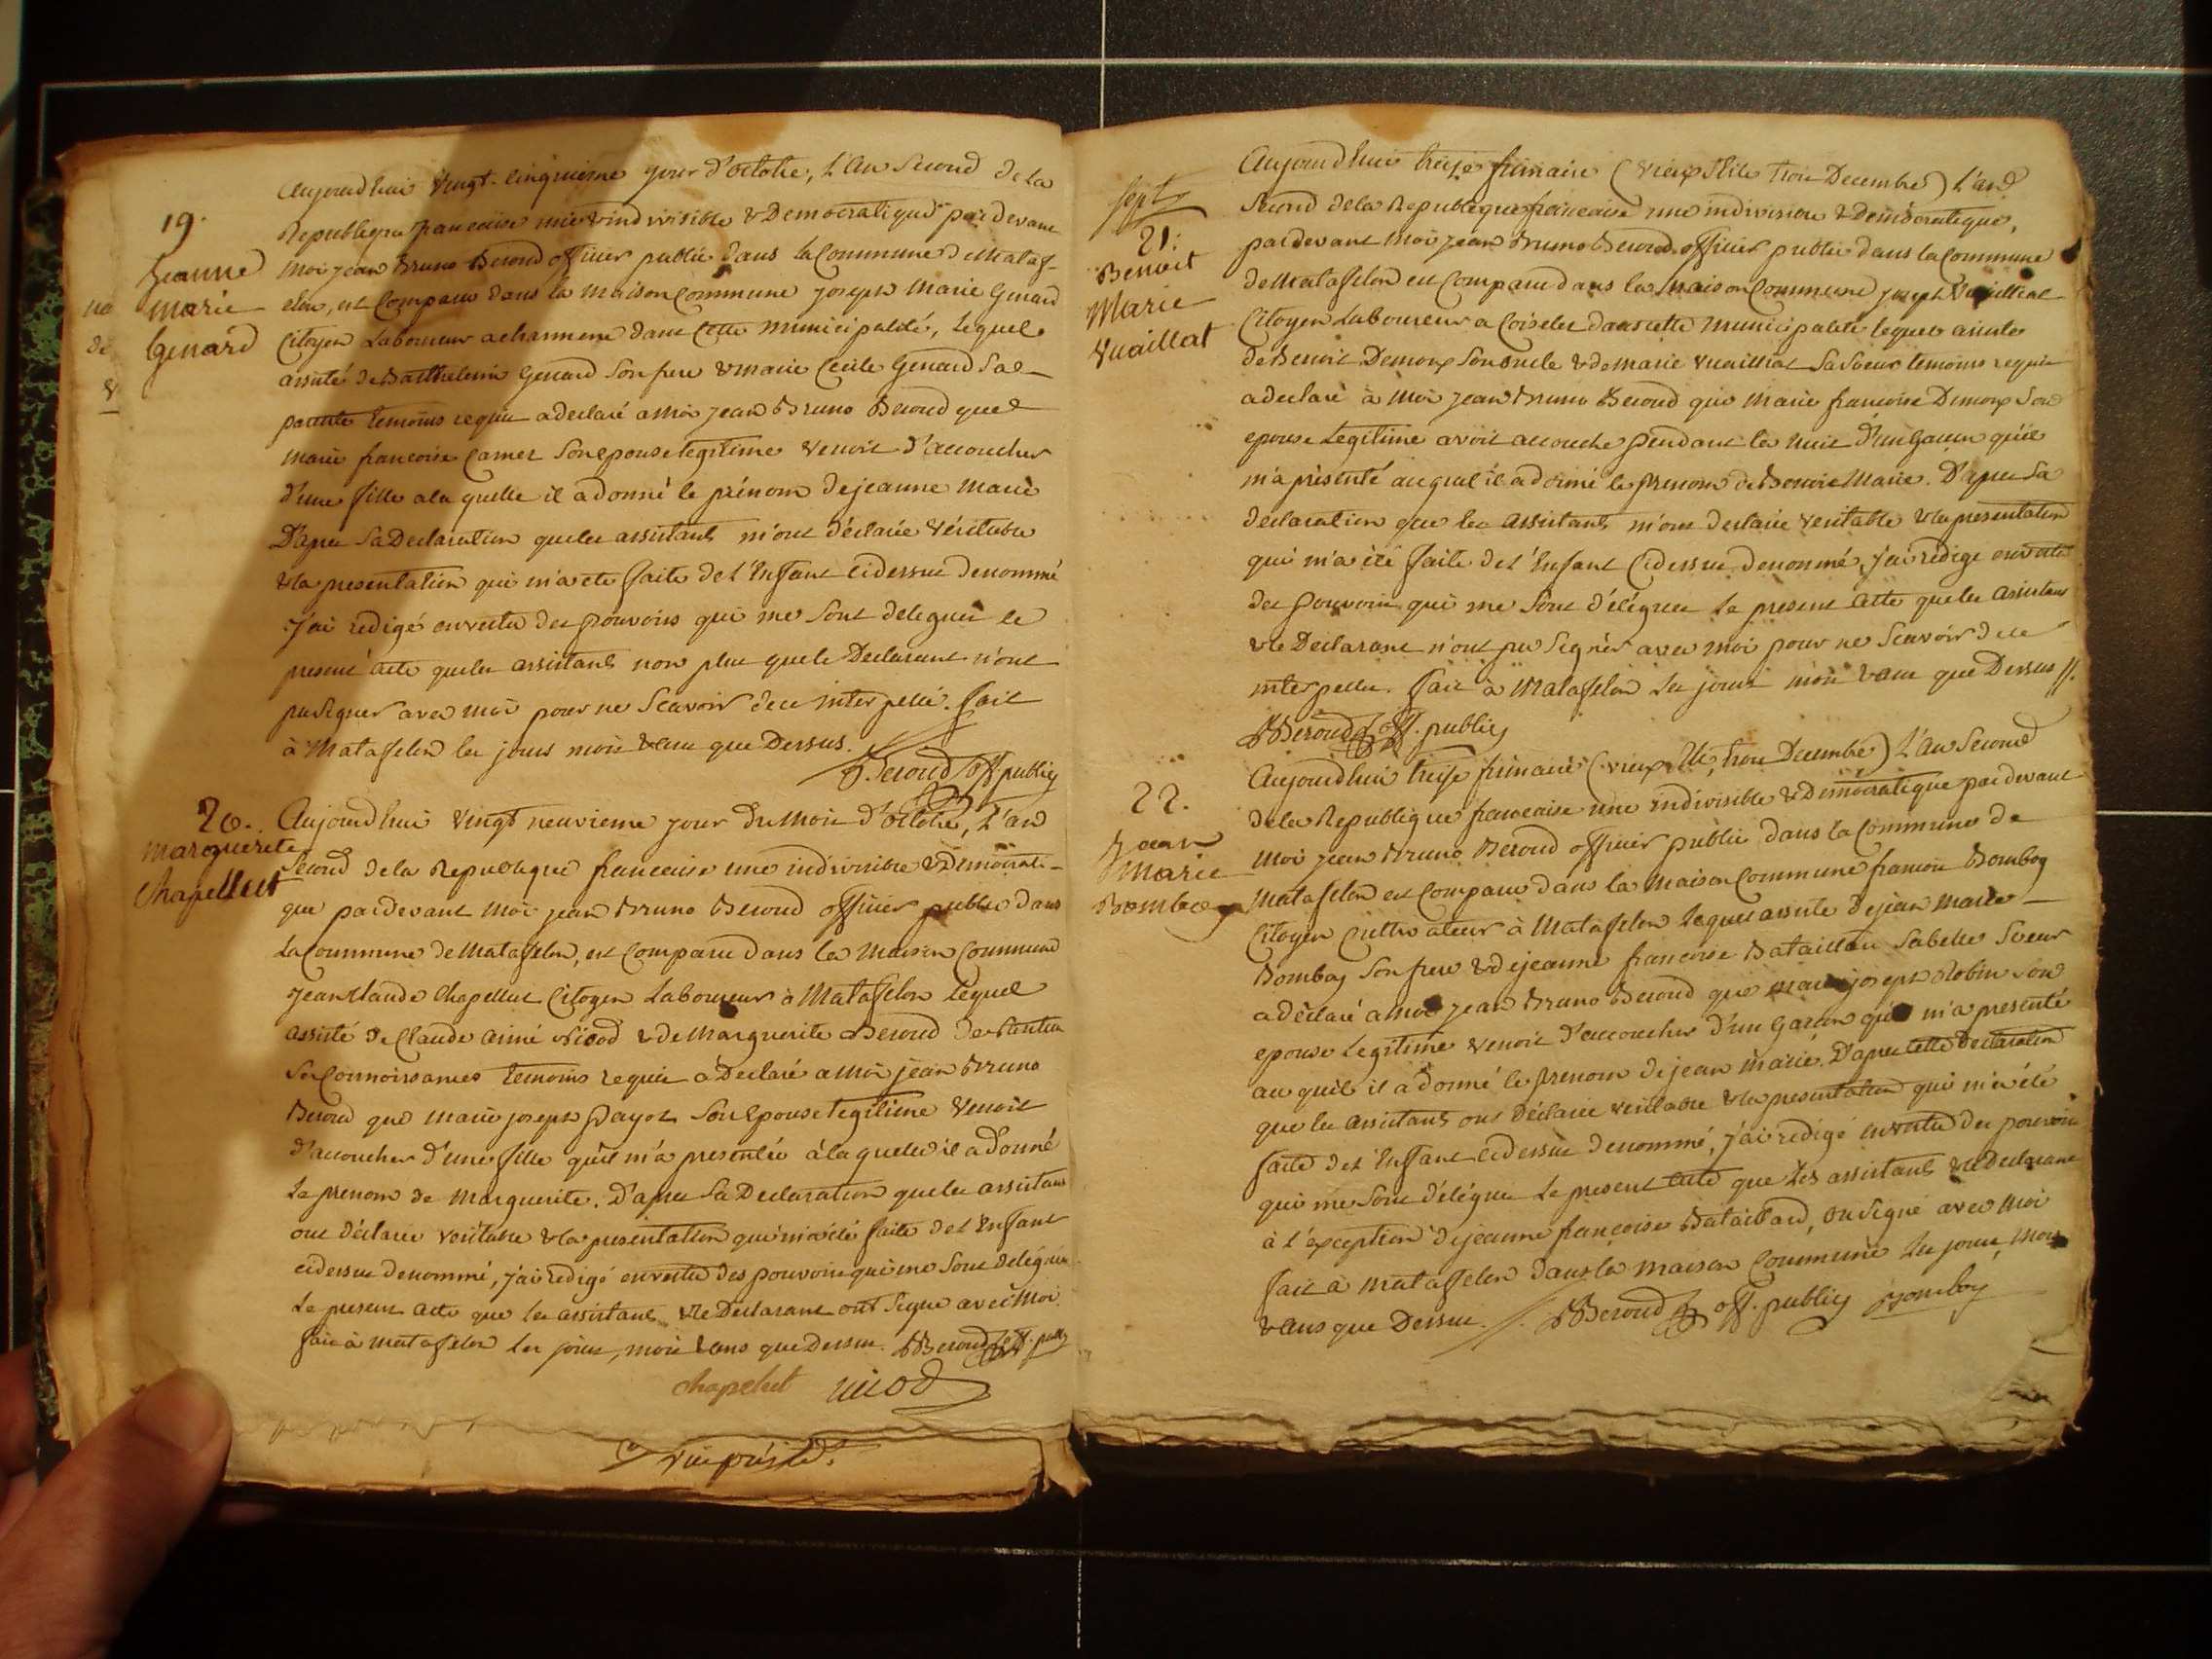 19.
Jeanne
marie
Genard
Aujourd'hui vingt-cinquieme jour d'octobre, L'an Second de La
Republique francaise une & indivisible & Democratique pardevant
moi jean Bruno Beroud officier public dans la Commune de Mataf-
elon, est Comparu dans la maison Commune joseph Marie Genard
Citoyen Laboureur a dans Cette municipalité, Lequel
assisté de Barthelemi Genard Son frere & marie Cecile Genard Sa
parente temoins requis a declaré a moi jean Bruno Beroud que
marie francoise Carmet Son epouse legitime Venoit d'accoucher
d'une fille a la quelle il a donné le prénom de jeanne Marie
D'apres Sa Declaration que les assistants m'ont déclarée Véritable
& la presentation qui m'a ete faite de l'Enfant cidessus denommé
j'ai redigé en vertu des pouvoirs qui me Sont delegués le
present acte que les assistants non plus que le Declarant n'ont
pu Signer avec moi pour ne Scavoir de ce interpellé. fait
à Matafelon les jours mois & an que Dessus.
Beroud off. public
20.
marguerite
Chapellut
Aujourd'hui vingt neuvieme jour du Mois d'octobre, L'an
Second de la Republique francaise une indivisible & Democrati-
que pardevant Moi jean Bruno Beroud officier public dans
La Commune de Matafelon, est Comparu dans la Maison Commune
jean Claude Chapellut Citoyen Laboureur à Matafelon Lequel
assisté de Claude aimé Nicod & de Marguerite Beroud
Ses Connoissances temoins requis a Declaré a Moi jean Bruno
Beroud que Marie joseph Payot Son Epouse legitime Venoit
d'accoucher d'une fille qu'il m'a presentée à la quelle il a donné
Le prenom de Marguerite. D'apres Sa Declaration que les assistans
ont déclarée veritable & la presentation qui m'a été faite de l'Enfant
cidessus denommé, j'ai redigé en vertu des pouvoirs qui me Sont delégués
Le present acte que les assistants & le Declarant ont Signé avec Moi.
fait à Matafelon les jour, mois & ans que Dessus. Beroud off. public
chapelut nicod
21.
Benoit
Marie
Vuaillat
Aujourd'hui treize frimaire (vieux Stile trois Decembre) L'an
Second de la Republique francaise une indivisible & Democratique,
pardevant Moi jean Bruno Beroud officier public dans la Commune
de Matafelon est Comparu dans la Maison Commune joseph Vuailliat
Citoyen Laboureur a Coiselet dans cette Municipalité lequel assisté
de Benoit Demoux Son oncle & de marie Vuailliat Sa Soeur temoins requis
a declaré à Moi jean Bruno Beroud que Marie francoise Demoux Son
epouse Legitime avoit accouché pendant la nuit d'un Garcon qu'il
m'a présenté auquel il a donné le prenom de Benoit Marie. D'apres Sa
declaration que les assistants m'ont declarée veritable & la presentation
qui m'a été faite de l'Enfant Cidessus denommé, j'ai redigé en vertu
des pouvoirs qui me Sont délégués Le present acte que les assistans
& le Declarant n'ont pu Signer avec moi pour ne Scavoir de ce
interpellés. fait à Matafelon Les jours mois & an que Dessus //.
Beroud off. public
22.
Jean
Marie
Bomboy
Aujourd'hui treize frimaire (vieux Stile, trois Decembre) L'an Second
de la Republique francaise une indivisible & Democratique pardevant
Moi jean Bruno Beroud officier public dans la Commune de
Matafelon est Comparu dans la Maison Commune francois Bomboy
Citoyen Cultivateur à Matafelon Lequel assisté de jean Marie
Bomboy Son frere & de jeanne francoise Bataillard Sa belle Soeur
a déclaré a Moi jean Bruno Beroud que marie joseph Robin Son
epouse Legitime Venoit d'accoucher d'un Garcon qu'il m'a presenté
au quel il a donné le prenom de jean Marie. D'apres cette Declaration
que les assistants ont déclarée veritable & la presentation qui m'a été
faite de l'Enfant cidessus denommé, j'ai redigé en vertu des pouvoirs
qui me Sont délégués Le present acte que Les assistants & le Declarant
à l'exception de jeanne francoise Bataillard, on Signé avec Moi
fait à Matafelon dans la maison Commune Les jour, Mois
& ans que Dessus. Beroud off. public Bomboy